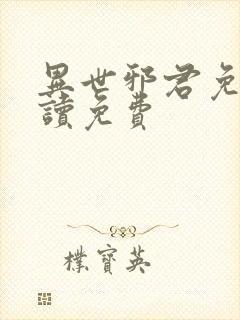 異世邪君免
讀免費
樸寶英